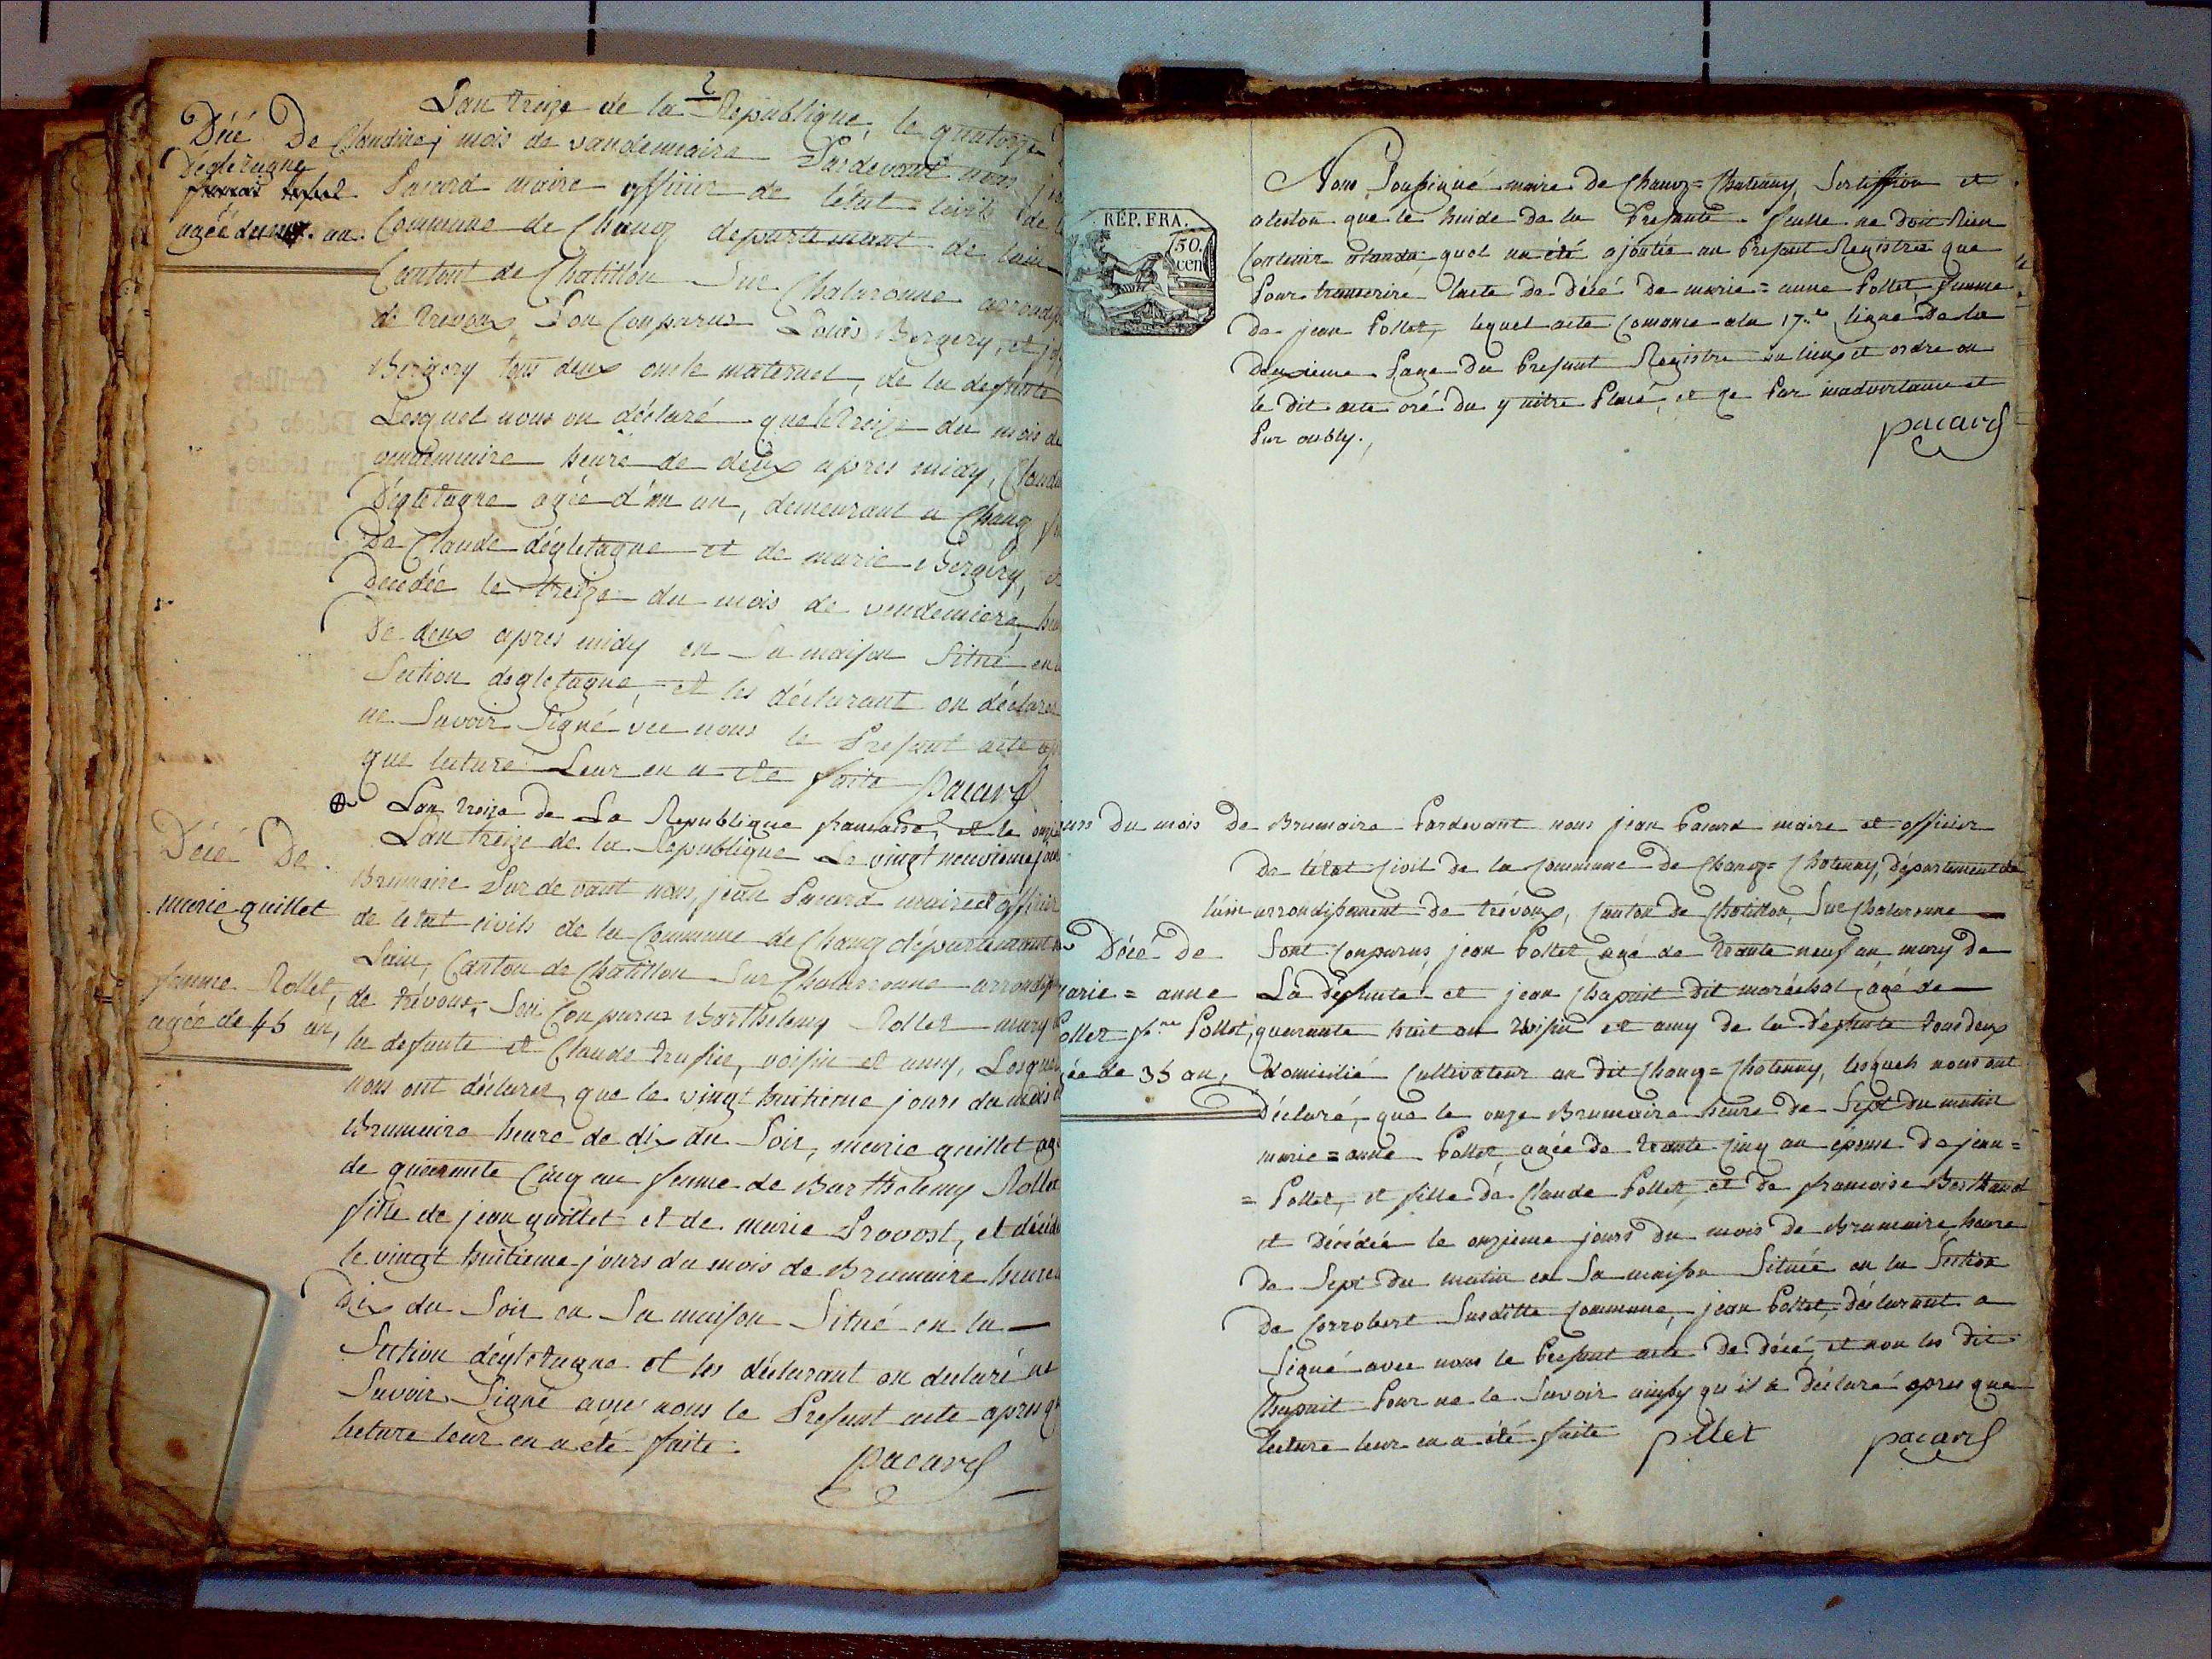 2
Lan treize de la Republique, le quatorze
Décé De Claudine
Degletagne
agée d'un an
mois de vandemiaire Pardevant nous
Pacard maire officier de létat civils de la
Commune de Chanez departemant de lain
Cantont de Chatillon Sur Chalaronne arrondis
de trevoux Son Conparus Louis Bergery, et
Bergery tous deux oncle maternel, de la defunte
Lesquel nous on déclaré que le treize du mois de
vendemiaire heure de deux apres midy, Claudi
Dégletagne agée d'un an, demeurant a Chanez
De Claude dégletagne et de marie Bergery,
Decedée le treize du mois de vendemiere,
De deux apres midy en Sa maison Situé en
Section degletagne, et les déclarant on déclarer
ne Savoir Signé vec nous le Present acte
que lecture Leur en a ete faite Pacard
Lan treize de La Republique francaise, et le onze
Décé De
marie guillet
femme Rollet,
agée de 45 an,
Lan treize de la Republique Le vingt neuvieme jour
Brumaire Par de vant nous, jean Pacard maire et officier
de letat civils de la Commune de Chanez département
Lain, Canton de Chatillon Sur Chalaronne arrondis
de trévoux, Son Conparus Barthelemy Rollet mary
la defunte et Claude trufier, voisin et amy, Lesquel
nous ont déclarer, que le vingt huitieme jours du mois
Brumaire heure de dix du Soir, marie guillet ag
de quarente Cinq an femme de Barthelemy Rollet
fille de jean guillet et de marie Provost, et décéde
le vingt huitieme jours du mois de Brumaire heure
Dix du Soir en Sa maison Situé en la
Section dégletagne et les déclarant on déclaré ne
Savoir Signé avec nous le Present acte apres q
lecture leur en a eté faite. Pacard
RÉP. FRA.
50.
cen
Nous Soussigné maire de Chanez = Chatenay Sertiffion et
ateston que le huide de la Presante feulle ne doit Rien
Contenir atandu quel na été ajoutée au Present Registre que
Pour transcrire lacte de décé de marie = anne Pollet femme
de jean Pollet, lequel acte Comance a la 17.e ligne De la
deuxieme Page du Present Registre au lieux et ordre ou
le dit acte oré du y aitre Placé, et ce Par inadvertance et
Par oubly., Pacard
jours du mois de Brumaire Pardevant nous jean Pacard maire et officier
de létat civil de la Commune de Chanez = Chatenay, département de
lain arrondissement de trévoux, Canton de Chatillon, Sur Chalaronne
Décé De
marie = anne
Pollet f.me Pollet,
agée de 35 an,
Sont Conparus, jean Pollet agé de trante neuf an mary de
La défunte et jean Chapuit dit maréchal, agé de
quarante huit an voisin et amy de la défunte tous deux
domicilié Cultivateur au dit Chanez = Chatenay, lesquels nous ont
Déclaré, que le onze Brumaire heure de Sept du matin
marie = anne Pollet, agée de trante cinq an epouse de jean =
= Pollet, et fille de Claude Pollet et de francoise Berthaud
et Décédée le onzieme jours du mois de Brumaire heure
de Sept du matin en Sa maison Située en la Section
de Corrobert Susditte Commune, jean Pollet, déclarant a
Signé avec nous le Present acte de décé, et non les dit
Chapuit Pour ne le Savoir ainsy qu'il a Déclaré apres que
lecture leur en a été faite pllet Pacard